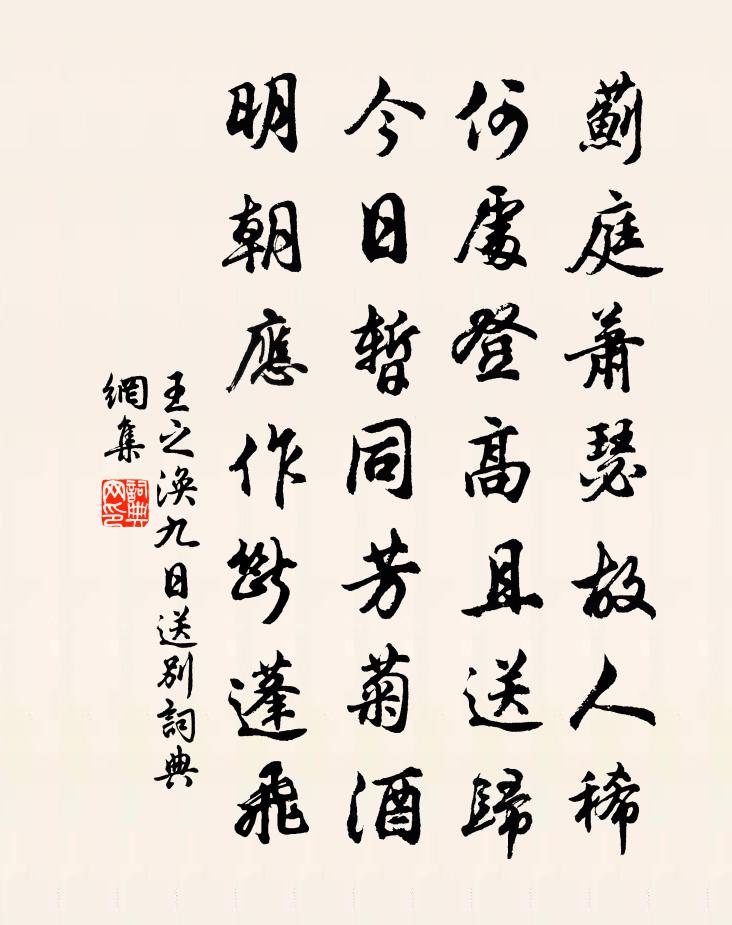 薊庭蕭瑟故人稀
何處登高且送歸
今日暫同芳菊酒
明朝應作斷蓬飛
王之渙九日送別詞典
網集
詞典
网印